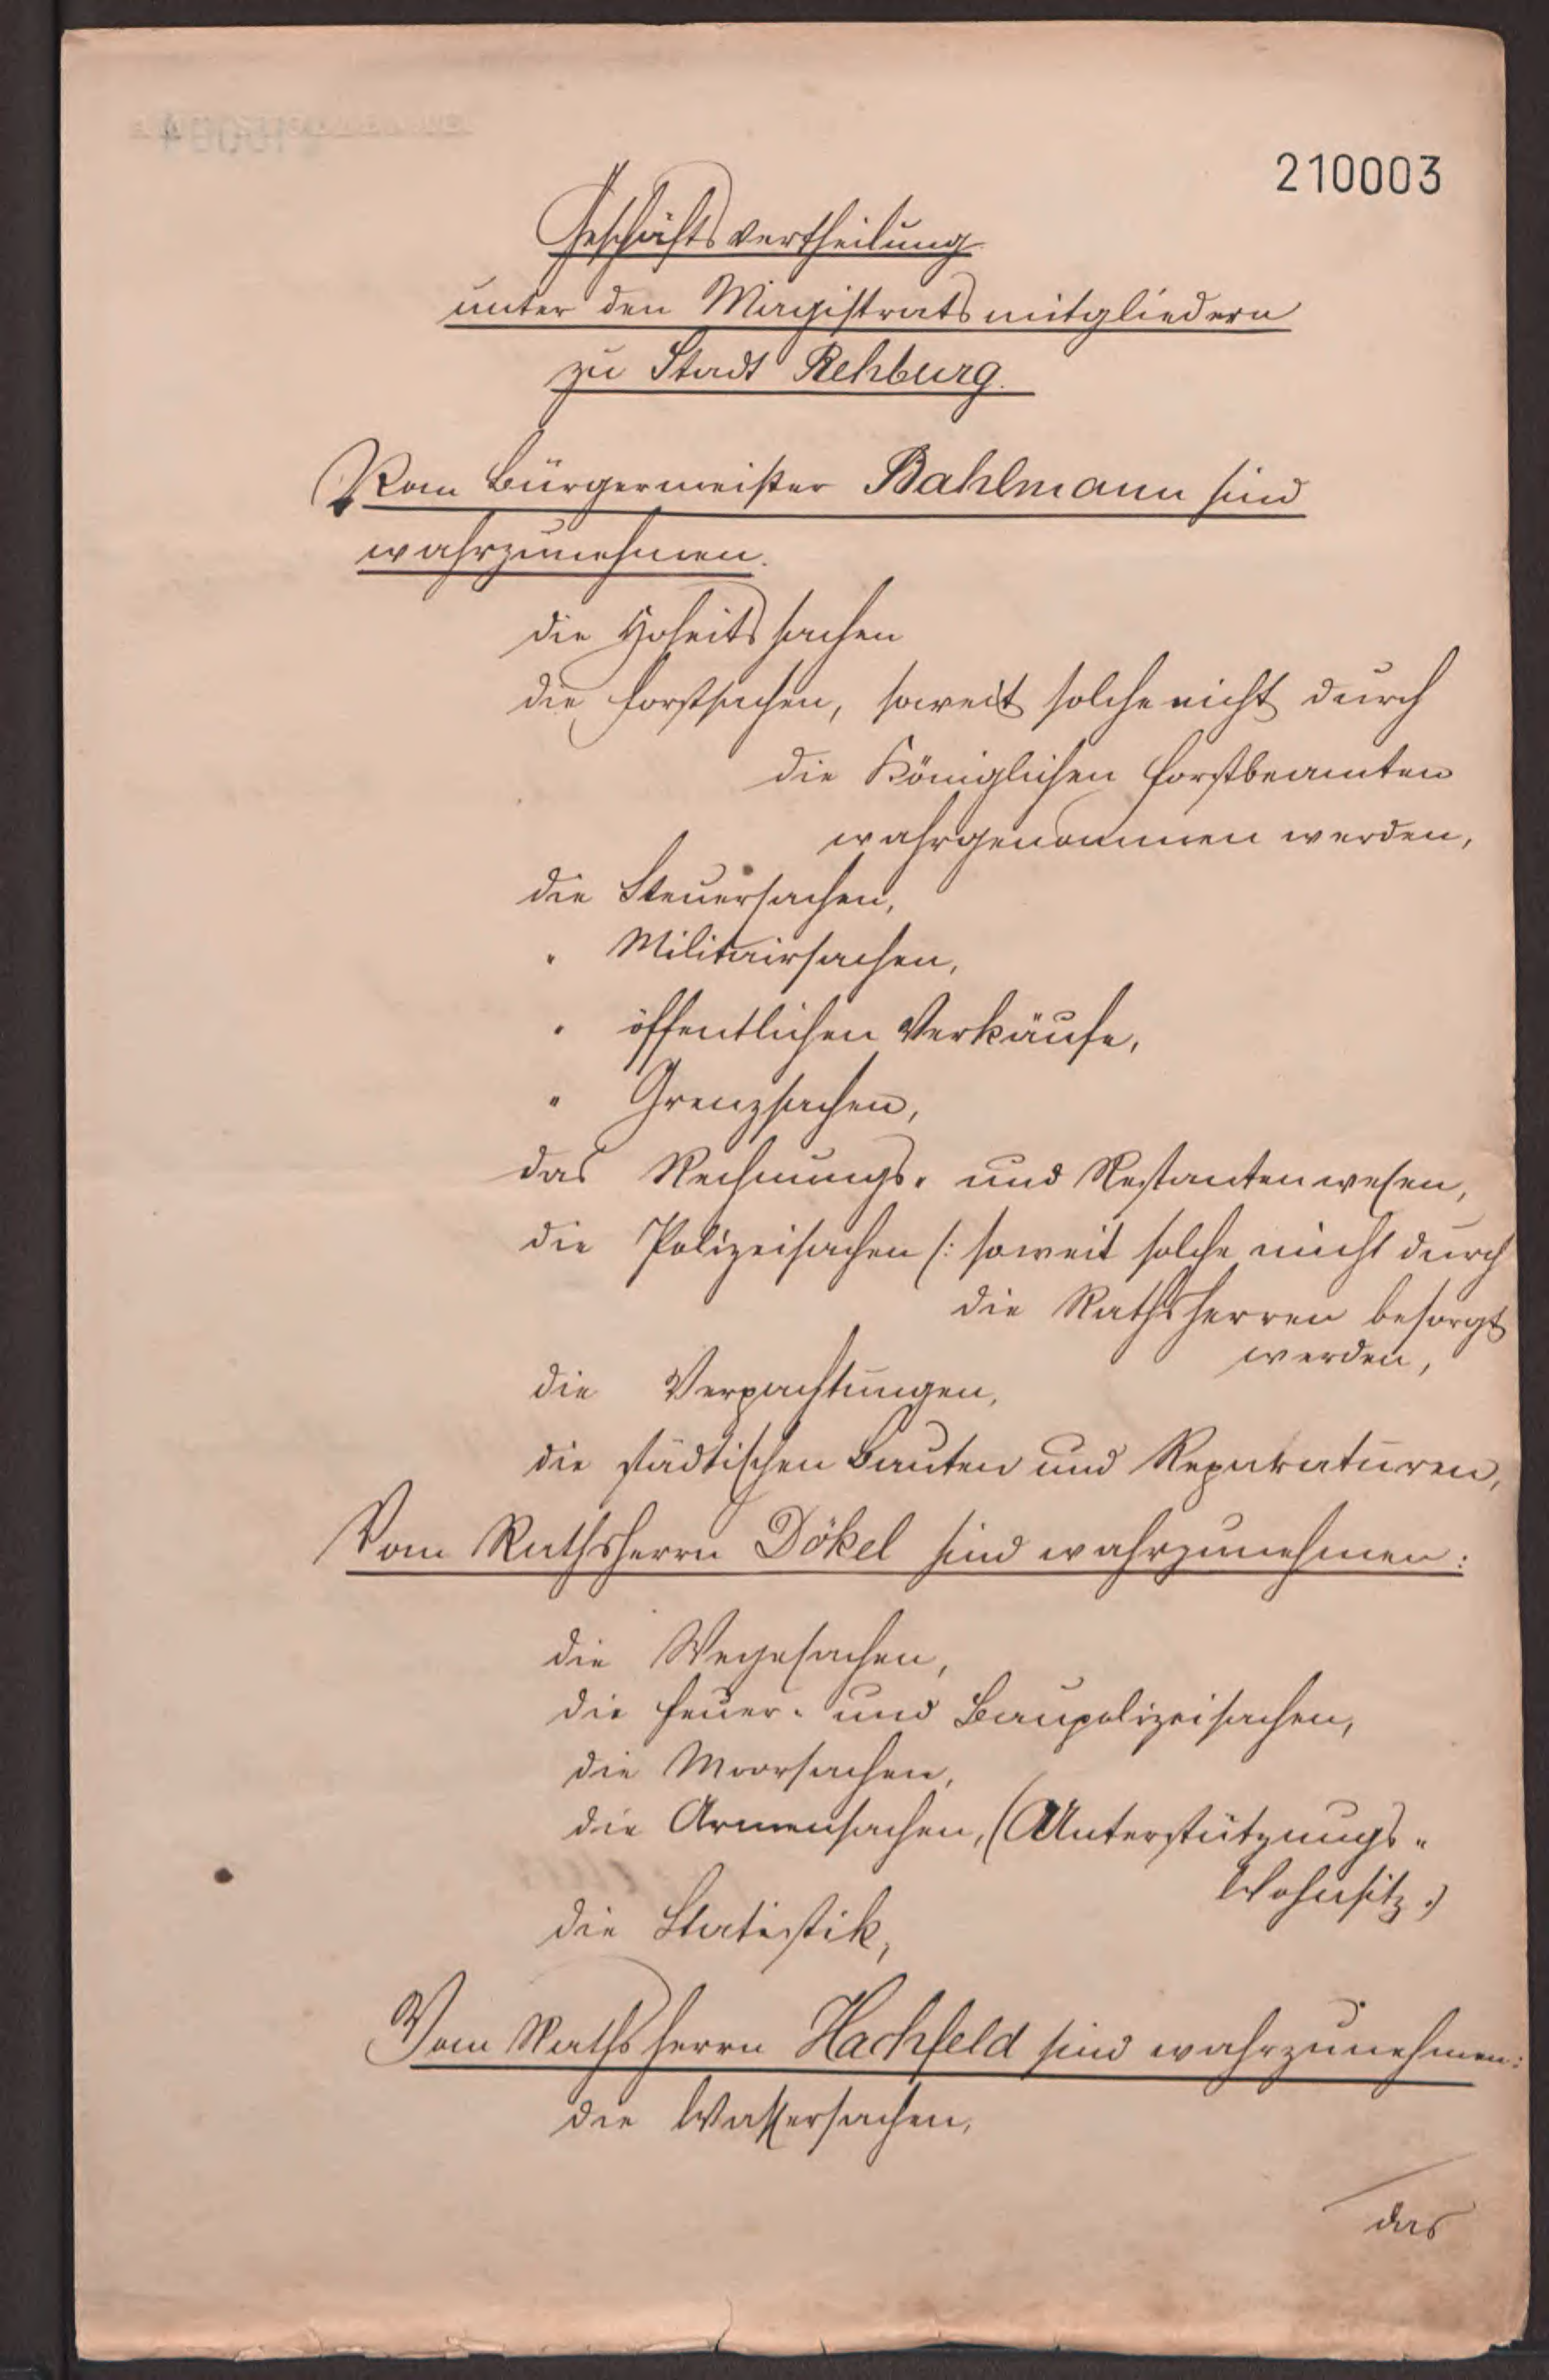 210003
Geschäftsvertheilung
unter den Magistratsmitgliedern
zu Stadt Rehburg.
Vom Bürgermeister Bahlmann sind
wahrzunehmen.
die Hoheitssachen
die Forstsachen, soweit solche nicht durch
die Königlichen Forstbeamten
wahrgenommen werden,
die Steuersachen,
" Militairsachen,
" öffentlichen Verkäufe,
" Grenzsachen,
das Rechnungs- und Restantenwesen,
die Polizeisachen /: soweit solche nicht durch
die Rathsherren besorgt
werden,
die Verpachtungen,
die städtischen Bauten und Reparaturen,
Vom Rathsherrn Dökel sind wahrzunehmen:
die Wegesachen,
die Feuer- und Baupolizeisachen,
die Moorsachen,
die Armensachen, (Unterstützungs-
Wohnsitz.)
die Statistik,
Vom Rathsherrn Hachfeld sind wahrzunehmen:
die Wassersachen,
das